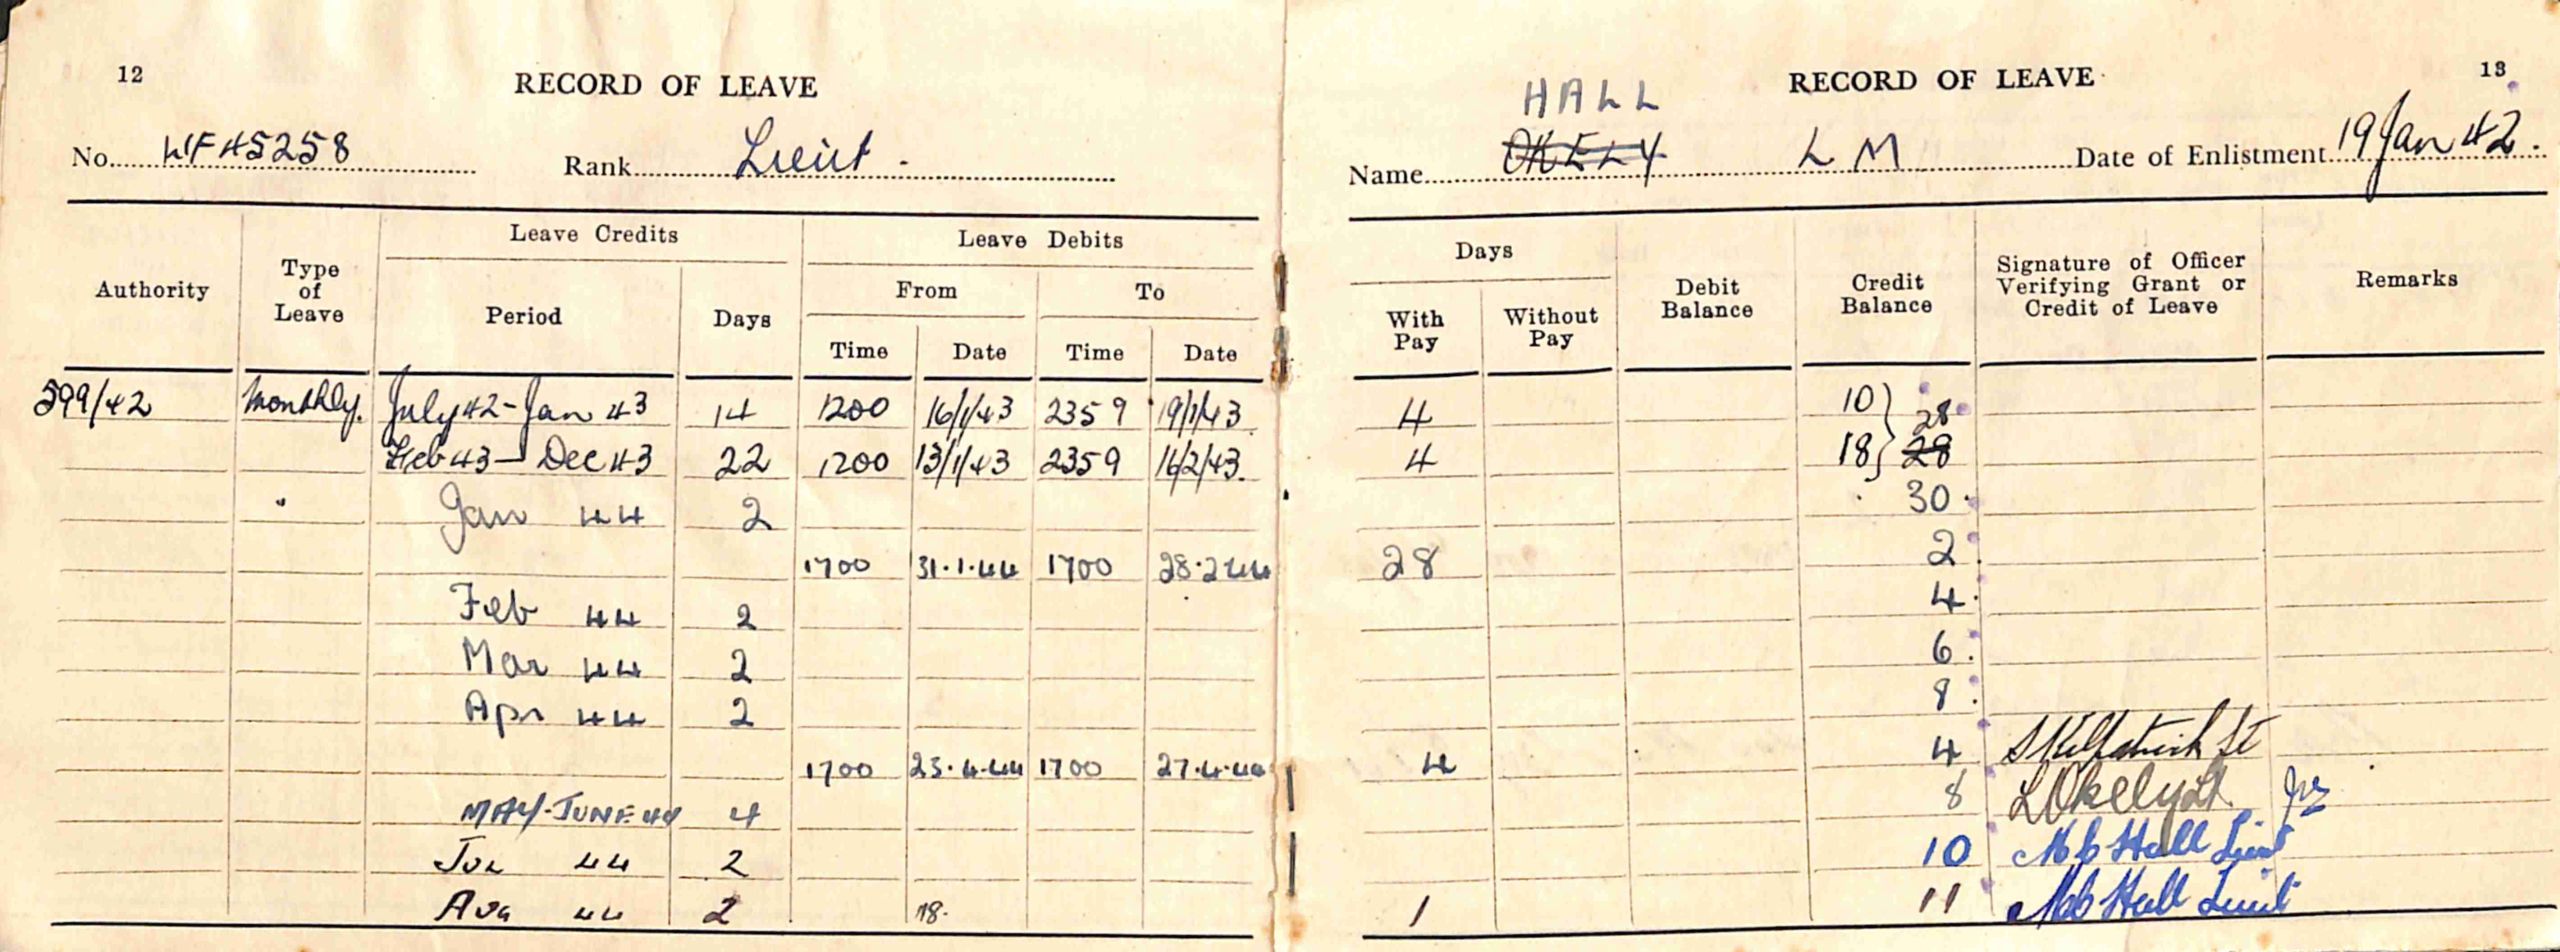 12
RECORD OF LEAVE
No. WF45258 Rank Lieut.
Authority Type of Leave Leave Credits Leave Debits
Period Days From To
Time Date Time Date
599/42 Monthly. July 42 - Jan 43 14 1200 16/1/43 2359 19/1/43
Feb 43 - Dec 43 22 1200 13/1/43 2359 16/2/43.
" Jan 44 2
1700 31.1.44 1700 28.2.44
Feb 44 2
Mar 44 2
Apr 44 2
1700 23.4.44 1700 27.4.44
MAY-JUNE 44 4
JUL 44 2
AUG 44 2 18.
RECORD OF LEAVE
13
HALL
Name OKELY L M Date of Enlistment 19 Jan 42.
Days Debit Balance Credit Balance Signature of Officer Verifying Grant or Credit of Leave Remarks
With Pay Without Pay
4 10 } 28
4 18 } 28
30
28 2
4
6
8
4 4 S Kilpatrick Lt
8 L Okely Lt
10 Hall Lieut
1 11 Hall Lieut